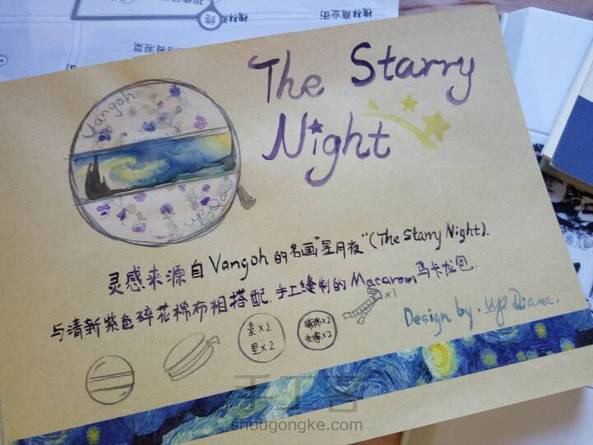 The Starry
Night
Vangoh
灵感来源自 Vangoh 的名画"星月夜"(The Starry Night).
与清新紫色碎花棉布相搭配.手工缝制的 Macaron 马卡龙包.
×1
表×2
里×2
铺棉×2
Design by. up Diana.
手工客
shougongke.com